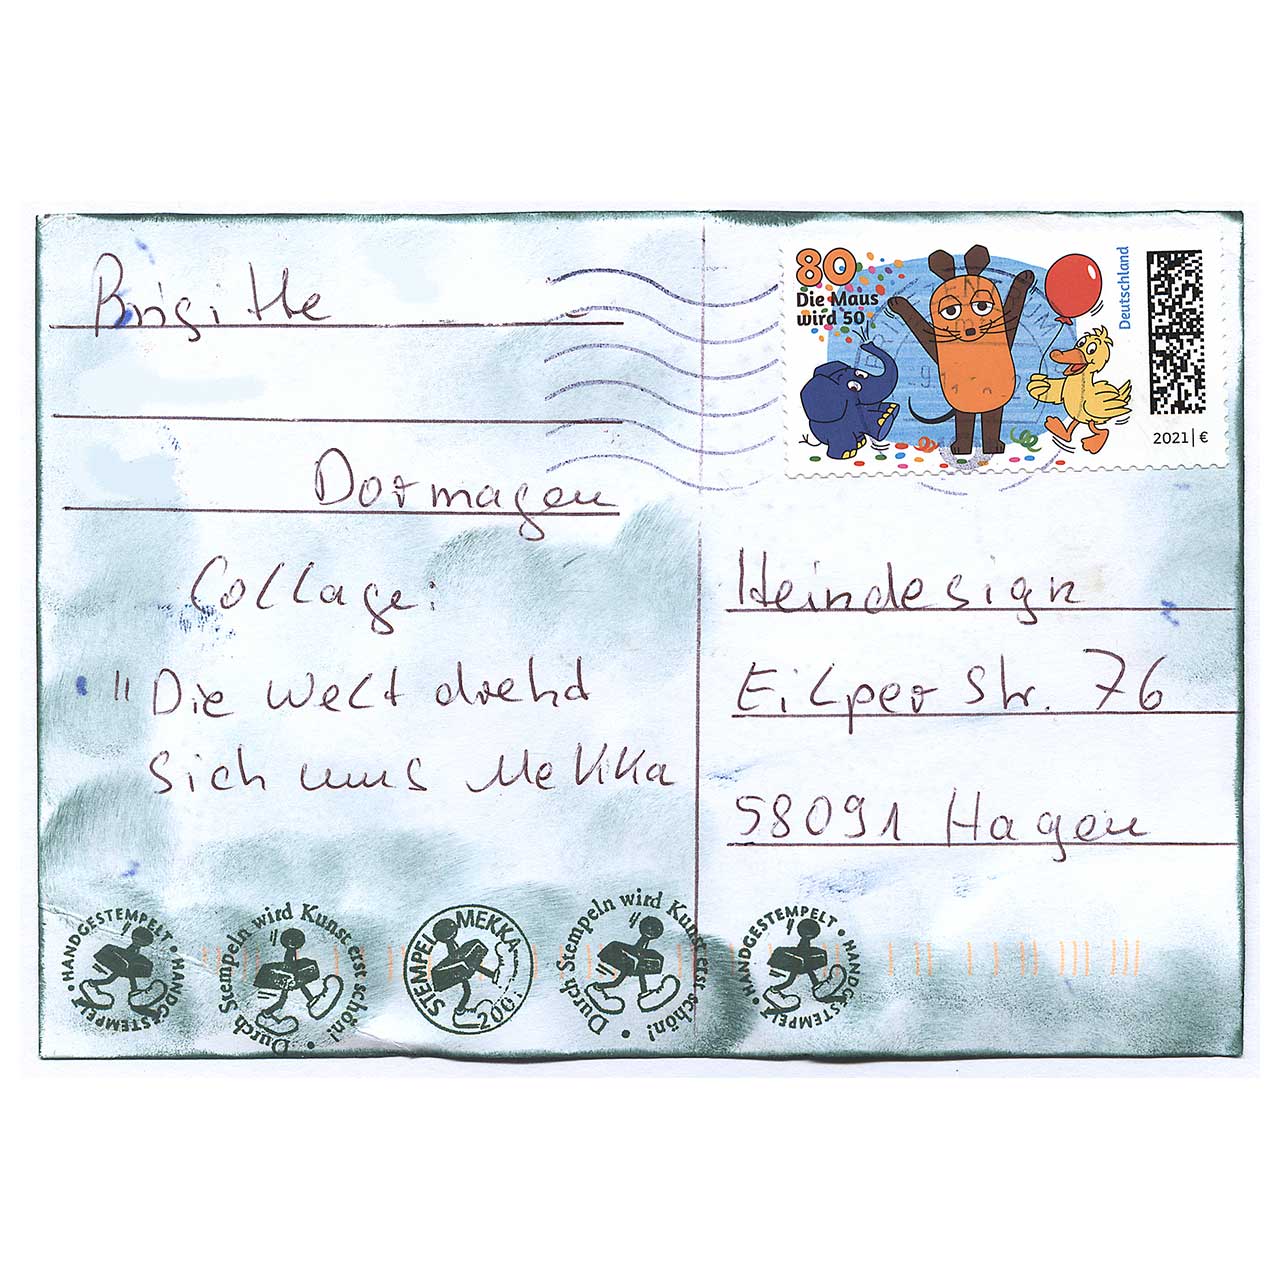 Brigitte
Dormagen
Collage:
"Die Welt drehd
sich ums Mekka
80
Die Maus
wird 50
Deutschland
2021 | €
Heindesign
Eilper Str. 76
58091 Hagen
HANDGESTEMPELT • HANDGESTEMPELT •
Durch Stempeln wird Kunst erst schön! •
STEMPEL MEKKA
Durch Stempeln wird Kunst erst schön! •
HANDGESTEMPELT • HANDGESTEMPELT •